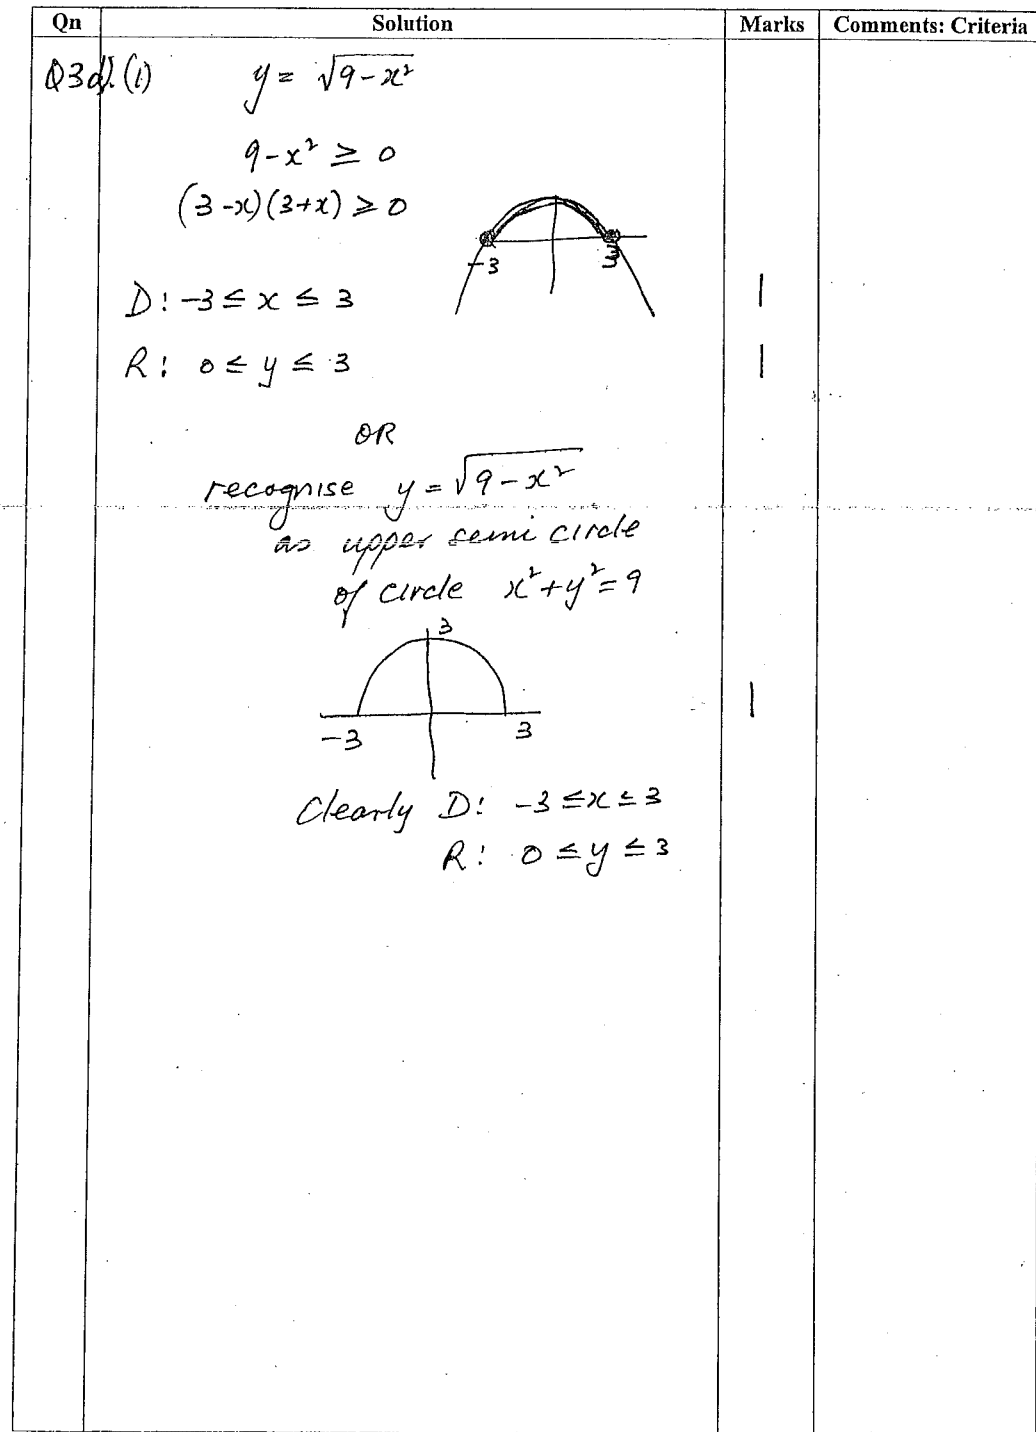 Qn Solution Marks Comments: Criteria
Q3d). (i) y = √9-x²
9-x² ≥ 0
(3-x)(3+x) ≥ 0
-3 3
D: -3 ≤ x ≤ 3 1
R: 0 ≤ y ≤ 3 1
OR
recognise y = √9-x²
as upper semi circle
of circle x²+y²=9
3
1
-3 3
Clearly D: -3 ≤ x ≤ 3
R: 0 ≤ y ≤ 3